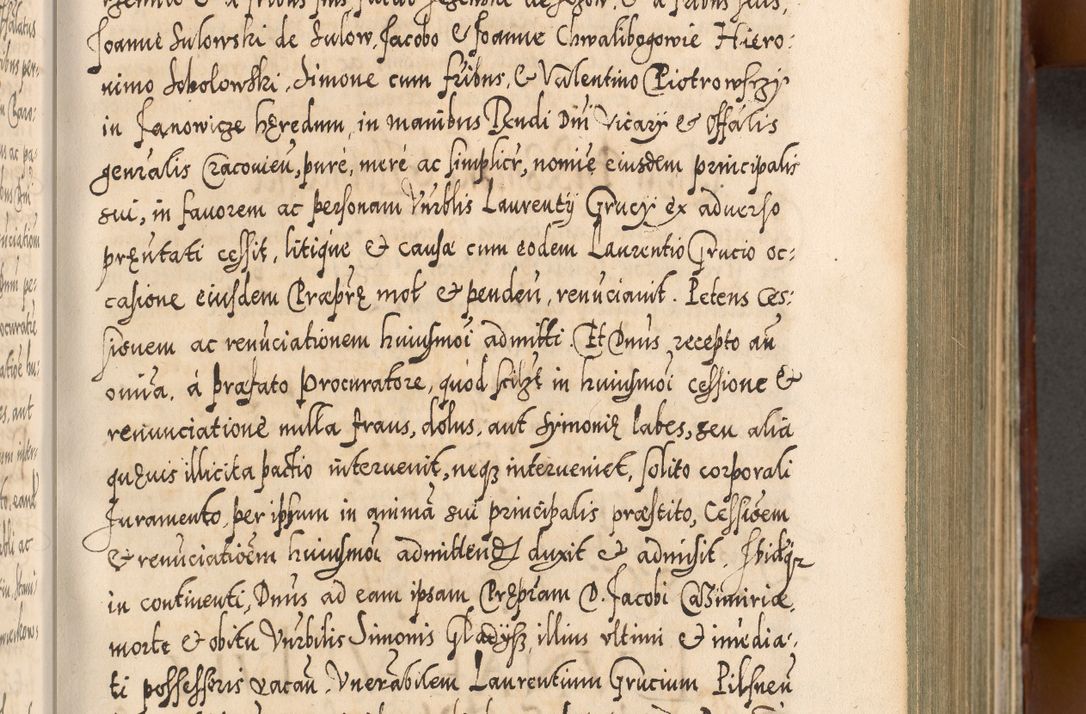 Joanne Sulowski de Sulow, Jacobo & Joanne Chwalibogowie Hiero:
nimo Sobolowski, Simone cum fribus, & Valentino Piotrowszy
in Janowicze hęredum, in manibus Rndi Dni Vicarÿ & Offalis
genralis Cracovien, purè, merè ac simplicr, nomie eiusdem principalis
sui, in favorem ac personam Vnrblis Laurentÿ Grucÿ ex adverso
pręntati cessit, litique & causæ cum eodem Laurentio Grucio oc:
casione eiusdem Præprę mot & penden, renūciavit. Petens Ces:
sionem ac renūciationem huiusmoi admitti. Et Dnus, recepto an
omia, á præfato Procuratore, quòd scilzę in huiusmoi cessione &
renunciatione nulla fraus, dolus, aut symonię labes, seu alia
quęuis illicita pactio intervenit, neqz interveniet, solito corporali
Juramento, per ipsum in animā sui principalis præstito, Cessioem
& renūciatioēm huiusmoi admittend duxit & admisit. Ibidqz
in continenti, Dnus ad eam ipsam Pręprām D. Jacobi Casimiriæ,
morte & obitu Vnrbilis Simonis Gladysz, illius vltimi & imedia:
ti possessoris vacan, Vnerabilem Laurentium Grucium Pilsnen